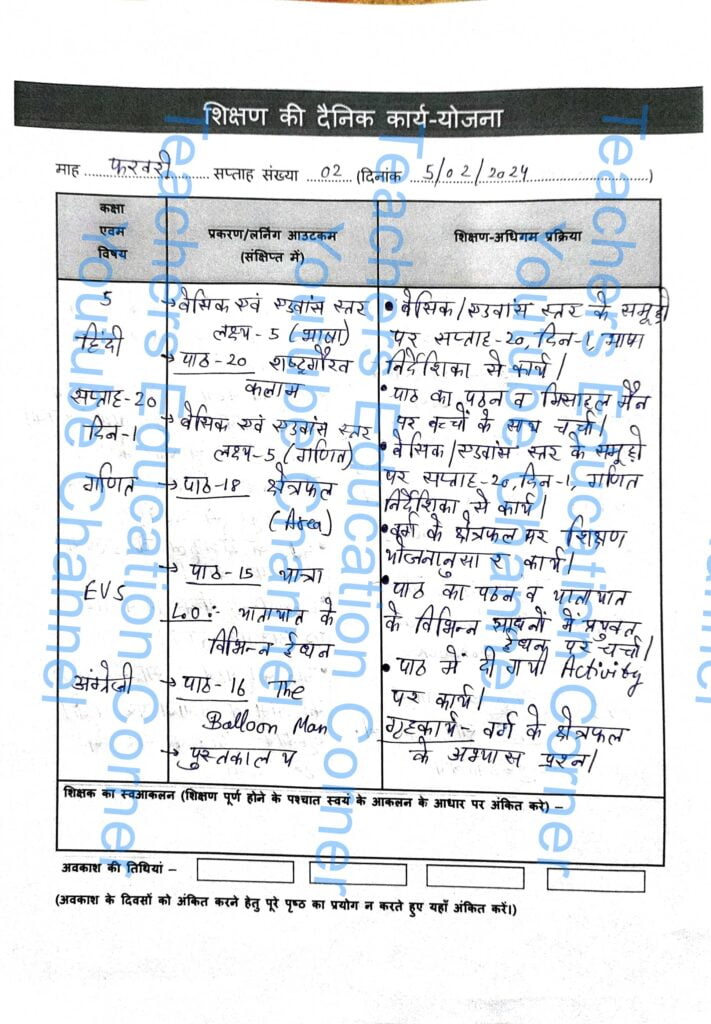 शिक्षण की दैनिक कार्य-योजना
माह फरवरी सप्ताह संख्या 02 (दिनांक 5/02/2024)
कक्षा
एवम
विषय
प्रकरण/लर्निंग आउटकम
(संक्षिप्त में)
शिक्षण-अधिगम प्रक्रिया
5
हिंदी
सप्ताह-20
दिन-1
गणित
EVS
अंग्रेजी
→ बेसिक एवं एडवांस स्तर
लक्ष्य-5 (भाषा)
→ पाठ-20 राष्ट्रगौरव
कलाम
→ बेसिक एवं एडवांस स्तर
लक्ष्य-5 (गणित)
→ पाठ-18 क्षेत्रफल
(Area)
→ पाठ-15 यात्रा
L.O:- यातायात के
विभिन्न ईंधन
→ पाठ-16 The
Balloon Man
→ पुस्तकालय
• बेसिक/एडवांस स्तर के समूहों
पर सप्ताह-20, दिन-1, भाषा
निर्देशिका से कार्य।
• पाठ का पठन व मिसाइल मैन
पर बच्चों के साथ चर्चा।
• बेसिक/एडवांस स्तर के समूहों
पर सप्ताह-20, दिन-1, गणित
निर्देशिका से कार्य।
• वर्ग के क्षेत्रफल पर शिक्षण
योजनानुसार कार्य।
• पाठ का पठन व यातायात
के विभिन्न साधनों में प्रयुक्त
ईंधन पर चर्चा।
• पाठ में दी गयी Activity
पर कार्य।
गृहकार्य- वर्ग के क्षेत्रफल
के अभ्यास प्रश्न।
शिक्षक का स्वआकलन (शिक्षण पूर्ण होने के पश्चात स्वयं के आकलन के आधार पर अंकित करे) –
अवकाश की तिथियां –
(अवकाश के दिवसों को अंकित करने हेतु पूरे पृष्ठ का प्रयोग न करते हुए यहाँ अंकित करें।)
Teachers Education Corner
Youtube Channel
Teachers Education Corner
Youtube Channel
Teachers Education Corner
Youtube Channel